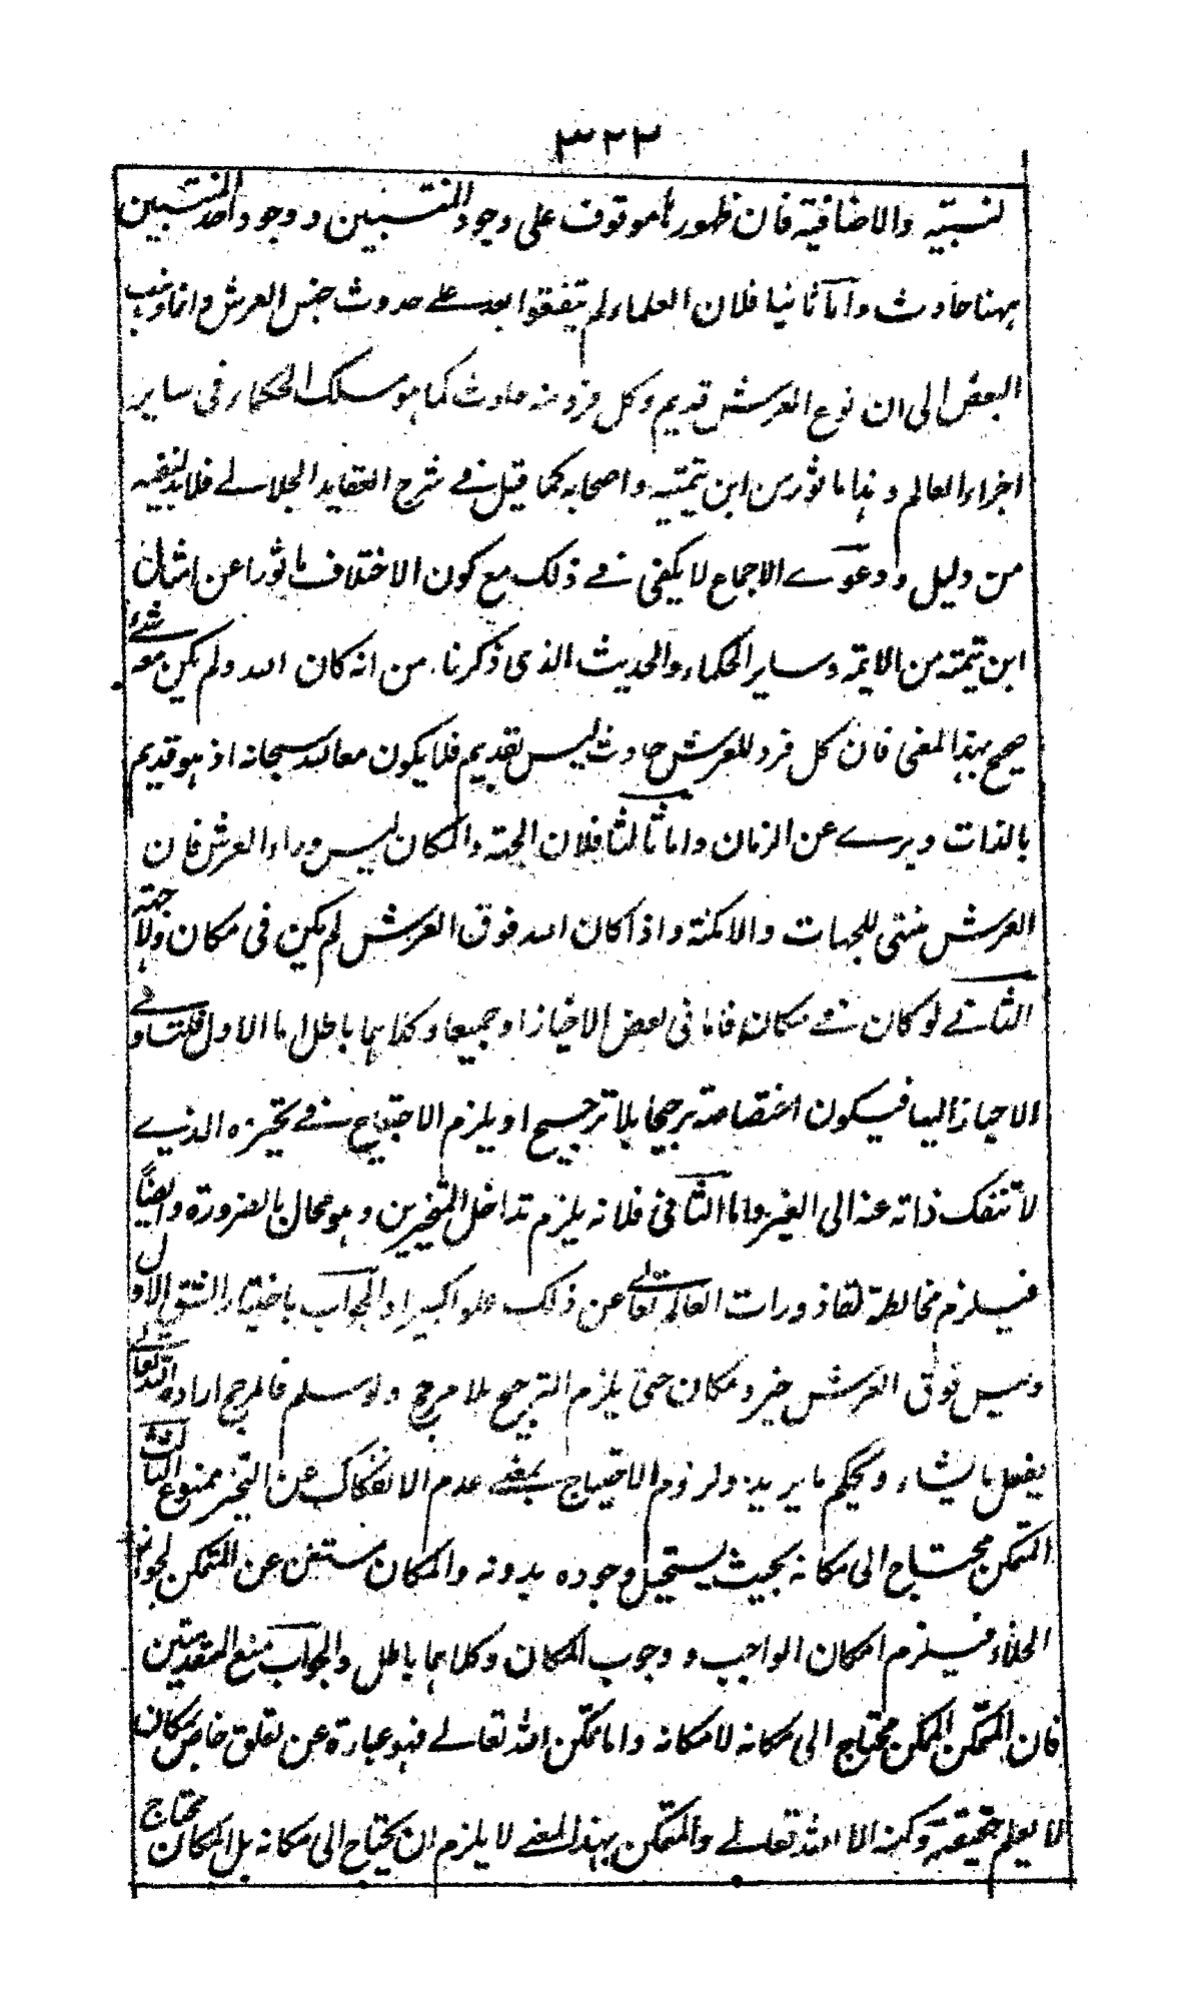 ٣٢٢
لنسبتيه والاضافية فان ظهورها موقوف على وجود المنتسبين و وجود احد المنتسبين
ههنا حادث واما ثانيا فلان العلماء لم يتفقوا بعد على حدوث جنس العرش وانما ذهب
البعض الى ان نوع العرش قديم وكل فرد منه حادث كما هو مسلك الحكماء فى ساير
اجزاء العالم وهذا ماثور من ابن تيمتيه واصحابه كما قيل فے شرح العقايد الجلالے فلابد لنفيه
من دليل ودعوے الاجماع لا يكفى فے ذلك مع كون الاختلاف ماثورا عن امثال
ابن تيمته من الايمة وساير الحكماء والحديث الذى ذكرنا من انه كان الله ولم يكن معه شئ
صحيح بهذا المعنى فان كل فرد للعرش حادث ليس بقديم فلا يكون مع الله سبحانه اذ هو قديم
بالذات وبرے عن الزمان واما ثالثا فلان الجهة والمكان ليس وراء العرش فان
العرش منتهى للجهات والامكنة واذا كان الله فوق العرش لم يكن فى مكان ولا جهته
الثانے لو كان فے مكان فاما فى بعض الاحياز او جميعا وكلاهما باطل اما الاول فلتساوے
الاحياز اليها فيكون اختصاصه ترجيحا بلا ترجيح او يلزم الاحتياج فے تحيزه الذے
لا تنفك ذاته عنه الى الغير واما الثانى فلانه يلزم تداخل المتحيزين وهو محال بالضرورة وايضاً
فيلزم مخالطة لقاذورات العالم تعالے عن ذلك علوا كبيرا والجواب باختيار الشق الاول
وليس فوق العرش حيز ومكان حتى يلزم الترجيح بلا مرجح ولو سلم فالمرجح ارادة الله تعالے
يفعل ما يشاء ويحكم ما يريد ولزوم الاحتياج بمعنے عدم الانفكاك عن التحيز ممنوع الثالث
المتمكن محتاج الى مكانه بحيث يستحيل وجوده بدونه والمكان مستغن عن المتمكن لجواز
الخلاء فيلزم امكان الواجب و وجوب المكان وكلاهما باطل والجواب منع المقدمتين
فان المتمكن الممكن محتاج الى مكانه لا مكانه واما تمكن الله تعالے فهو عبارة عن تعلق خاص بمكان
لا يعلم حقيقته وكنهه الا الله تعالے والمتمكن بهذا المعنے لا يلزم ان يحتاج الى مكانه بل المكان محتاج